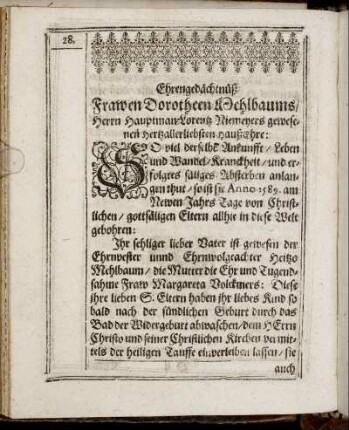 28.
Ehrengedächtnüß
Frawen Dorotheen Mehlbaums/
Herrn Hauptman Lorentz Niemeyers gewese-
nen hertzallerliebsten Haußehre:
SO viel derselbē Ankunfft/ Leben
und Wandel/ Kranckheit/ und er-
folgtes säliges Absterben anlan-
gen thut/ so ist sie Anno 1589. am
Newen Jahrs Tage von Christ-
lichen/ gottsäligen Eltern allhie in diese Welt
gebohren:
Ihr sehliger lieber Vater ist gewesen der
Ehrnvester unnd Ehrnwolgeachter Heitzo
Mehlbaum/ die Mutter die Ehr und Tugend-
sahme Fraw Margareta Volckmers: Diese
ihre lieben S. Eltern haben ihr liebes Kind so
bald nach der sündlichen Geburt durch das
Bad der Widergeburt abwaschen/ dem HErrn
Christo und seiner Christlichen Kirchen vermit-
tels der heiligen Tauffe einverleiben lassen/ sie
auch